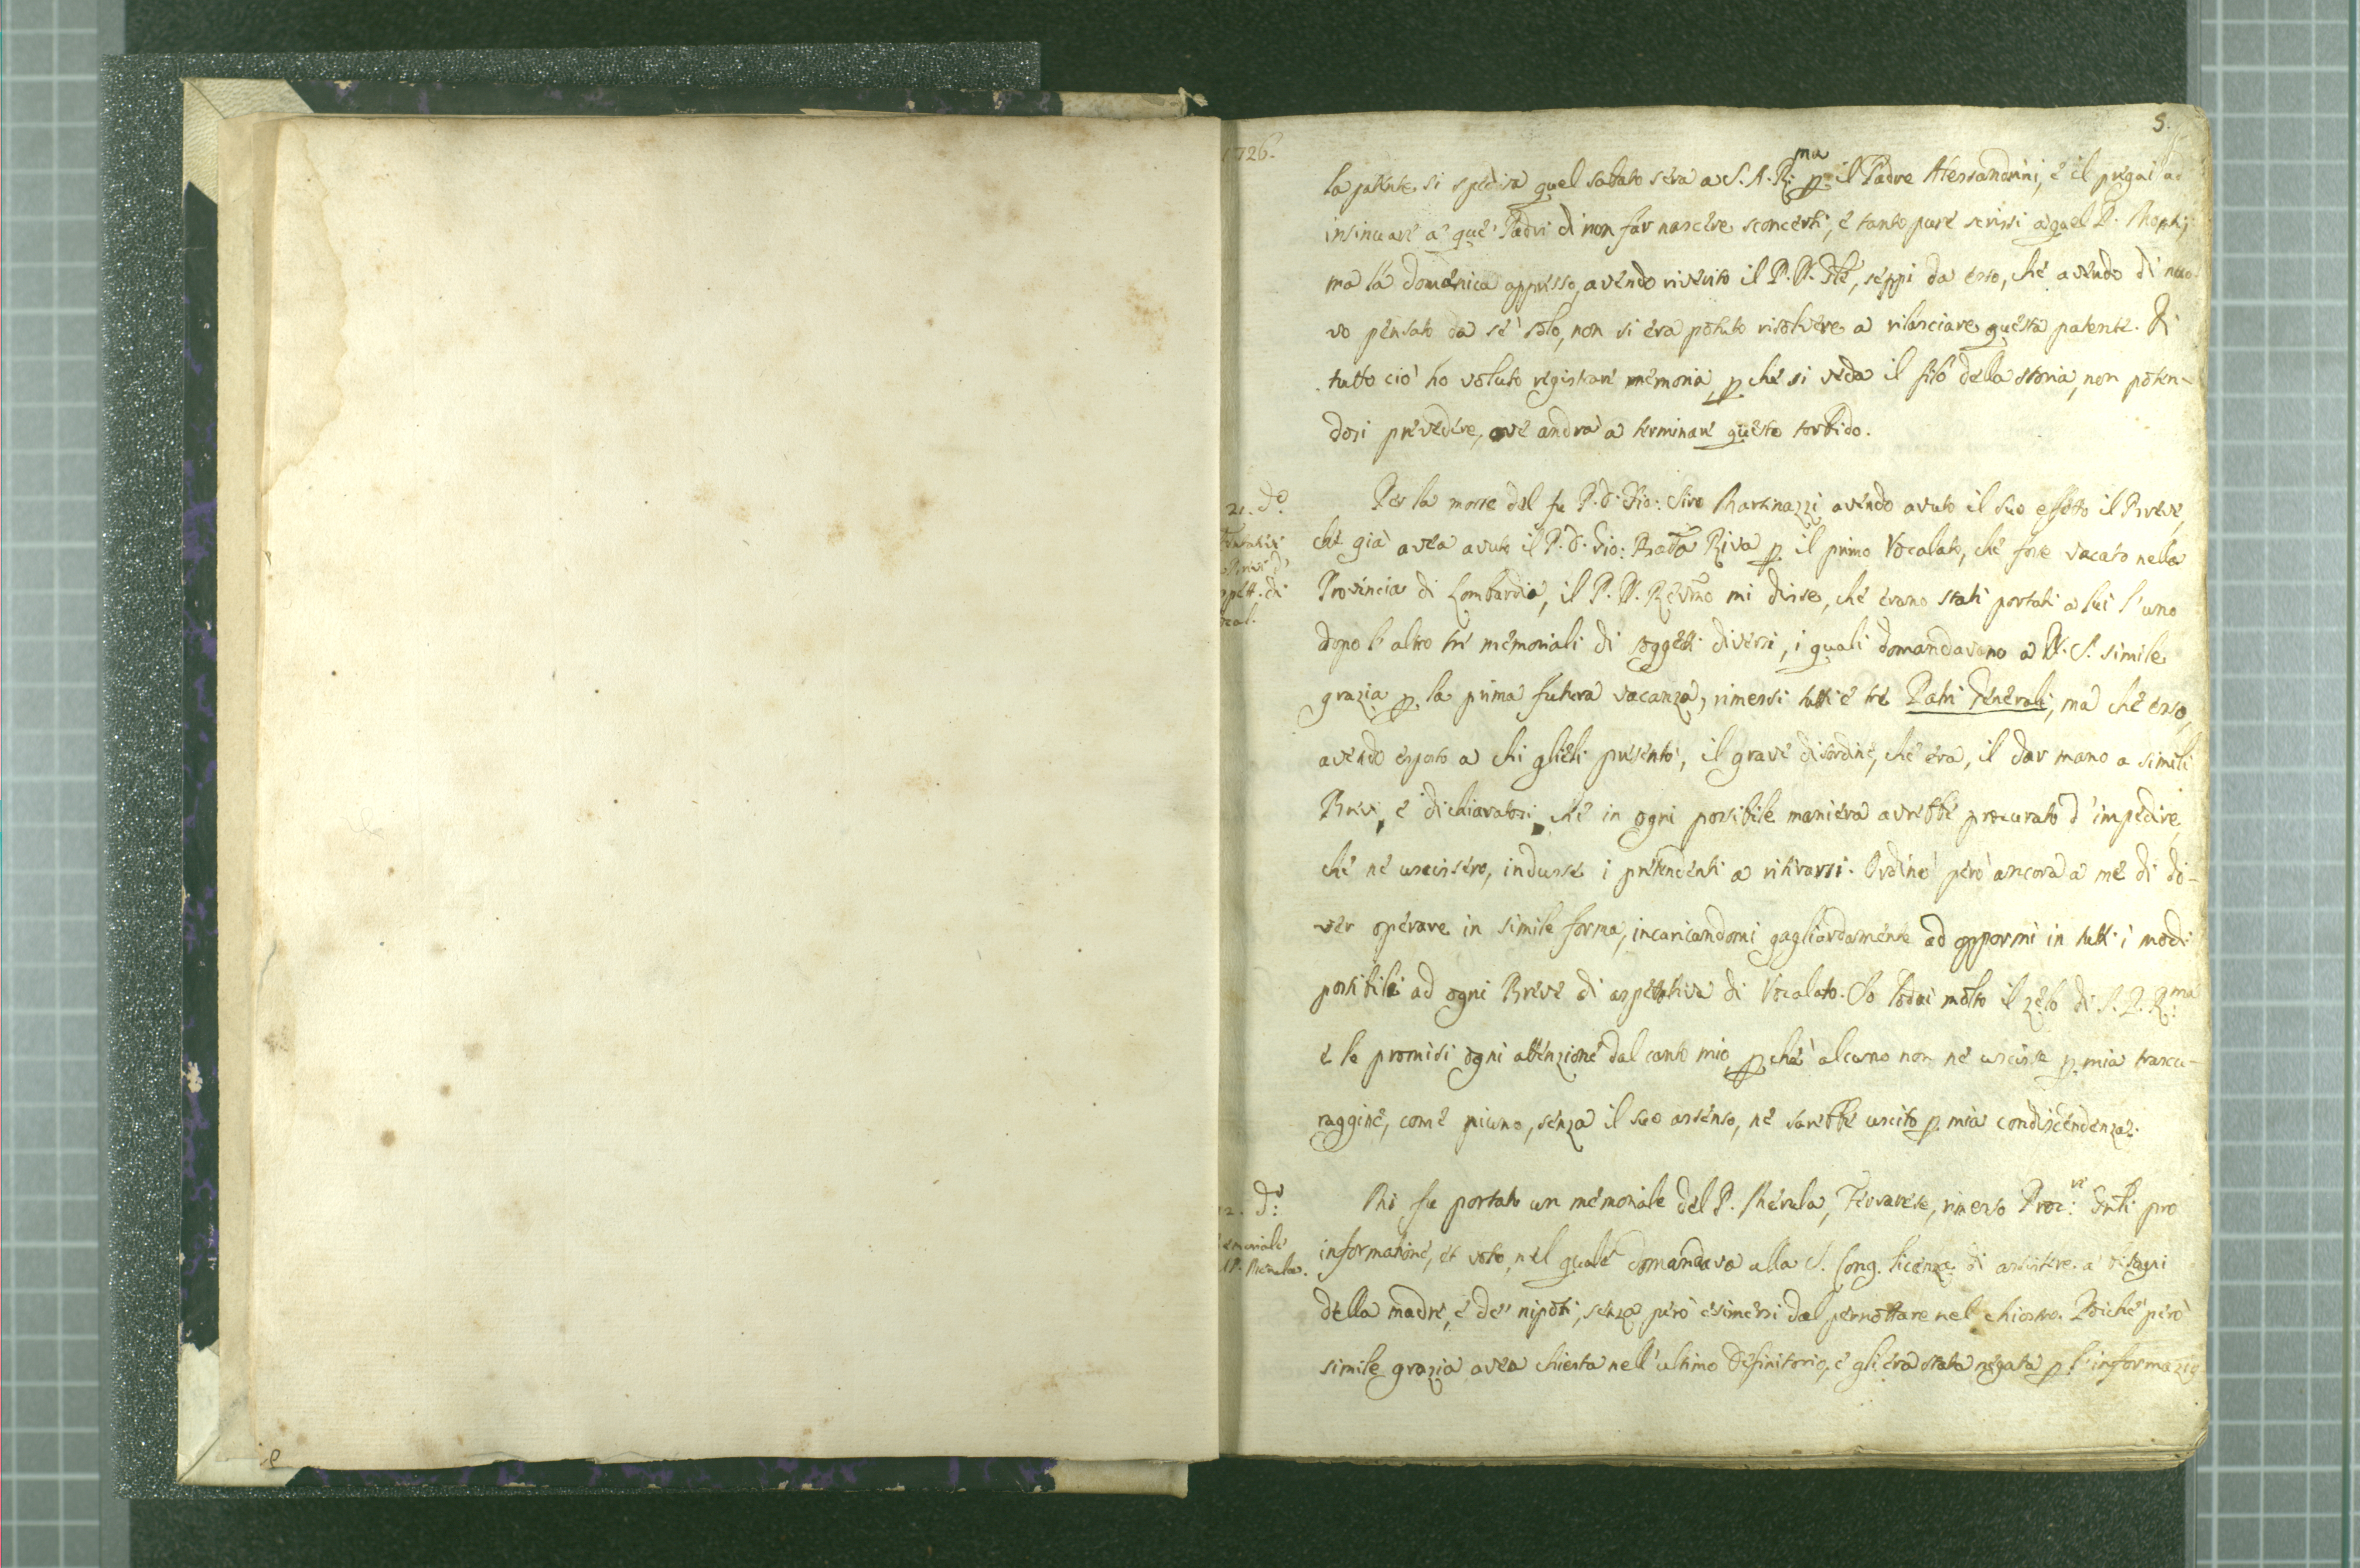 1726.
5.
la patente si spediva quel sabato sera a S. A. R.ma p il Padre Alessandrini, è il pregai ad
insinuare a' que' Padri di non far nascere sconcerti, è tanto pure scrissi a quel P.
ma la domenica appresso, avendo riverito il P. N. Gñle, seppi da esso, che avendo di nuo-
vo pensato da se' solo, non si era potuto risolvere a rilasciare questa patente. Di
tutto ciò ho voluto registrare memoria, pche si veda il filo della storia, non poten-
dosi prevedere, ove andrà a terminare questo torbido.
21. do.
Per la morte del fu P. D. Gio: Siro Martinazzi avendo avuto il suo effetto il Breve,
che già avea avuto il P. D. Gio: Batta Riva p il primo Vocalato, che fosse vacato nella
Provincia di Lombardia, il P. N. Revmo mi disse, che erano stati portati a lui l'uno
dopo l'altro tre memoriali di soggetti diversi, i quali domandavano a N. S. simile
grazia p la prima futura vacanza, rimessi tutti è tre Patri Generali, ma che esso,
avendo esposto a chi glieli presentò, il grave disordine, che era, il dar mano a simili
Brevi, è dichiaratosi, che in ogni possibile maniera avrebbe procurato d'impedire,
che ne uscissero, indusse i pretendenti a ritirarsi. Ordinò però ancora a me di do-
ver operare in simile forma, incaricandomi gagliardamente ad oppormi in tutti i modi
possibili ad ogni Breve di aspettativa di Vocalato. Io lodai molto il zelo di S. P. R.ma
è le promisi ogni attenzione dal canto mio, pche' alcuno non ne uscisse p mia trascu-
raggine, come niuno, senza il suo assenso, ne sarebbe uscito p mia condiscendenza.
22. do:
emoriale
P. Merula.
Mi fu portato un memoriale del P. Merula, Ferrarese, rimesso Proc:re Gñli pro
informatione, et voto, nel quale domandava alla S. Cong. licenza di assistere a' bisogni
della madre, è de' nipoti, senza però esimersi dal pernottare nel chiostro. Poiche' però
simile grazia avea chiesta nell'ultimo Definitorio, è gli era stata negata p l'informazio